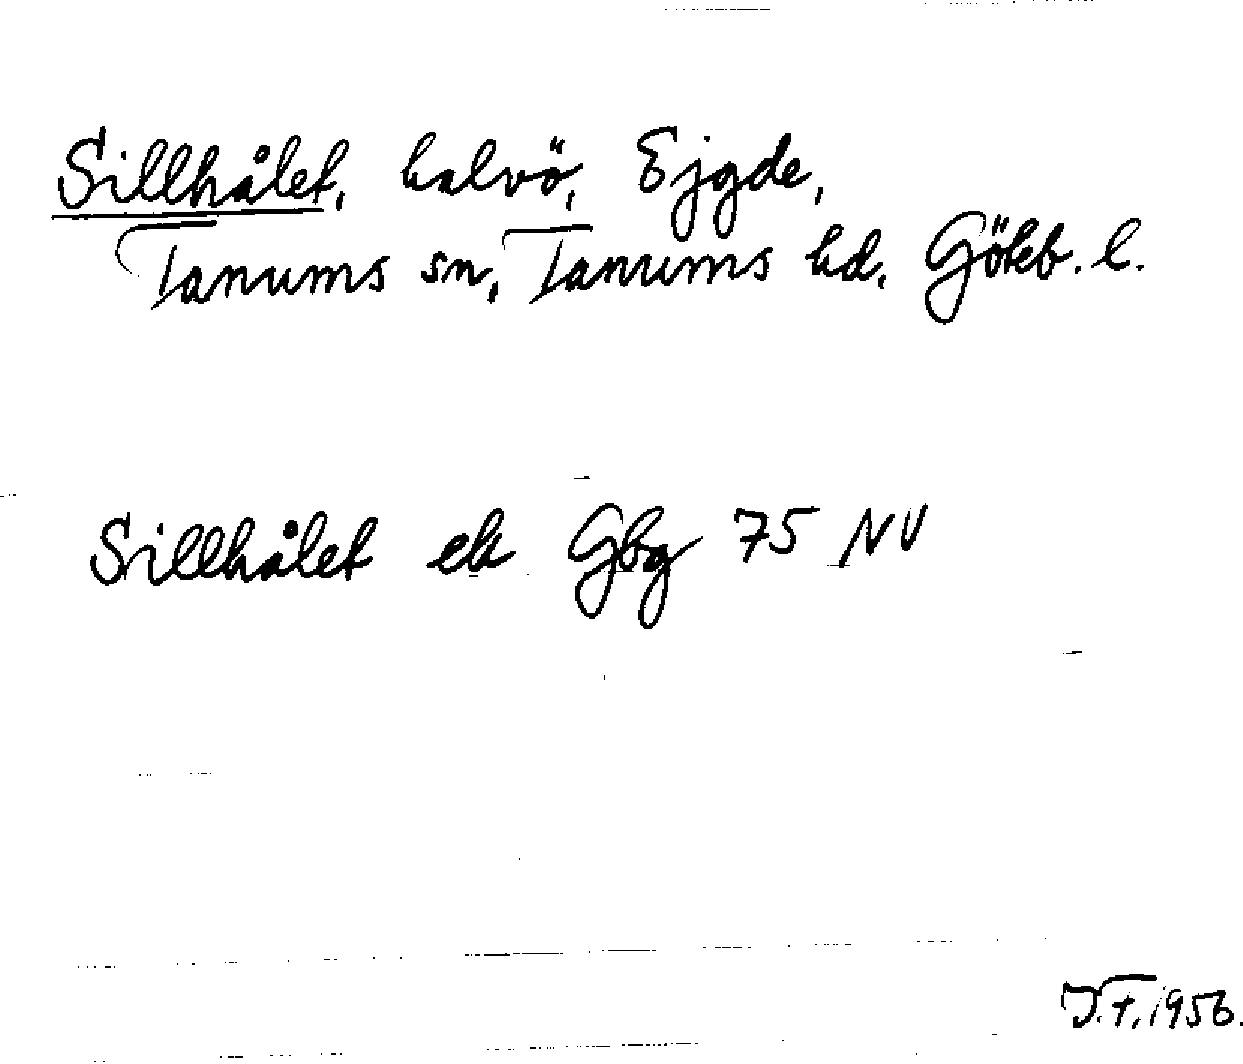 Sillhålet, halvö, Ejgde,
Tanums sn, Tanums hd, Göteb. l.
Sillhålet ek Gbg 75 NV
J.T. 1956.